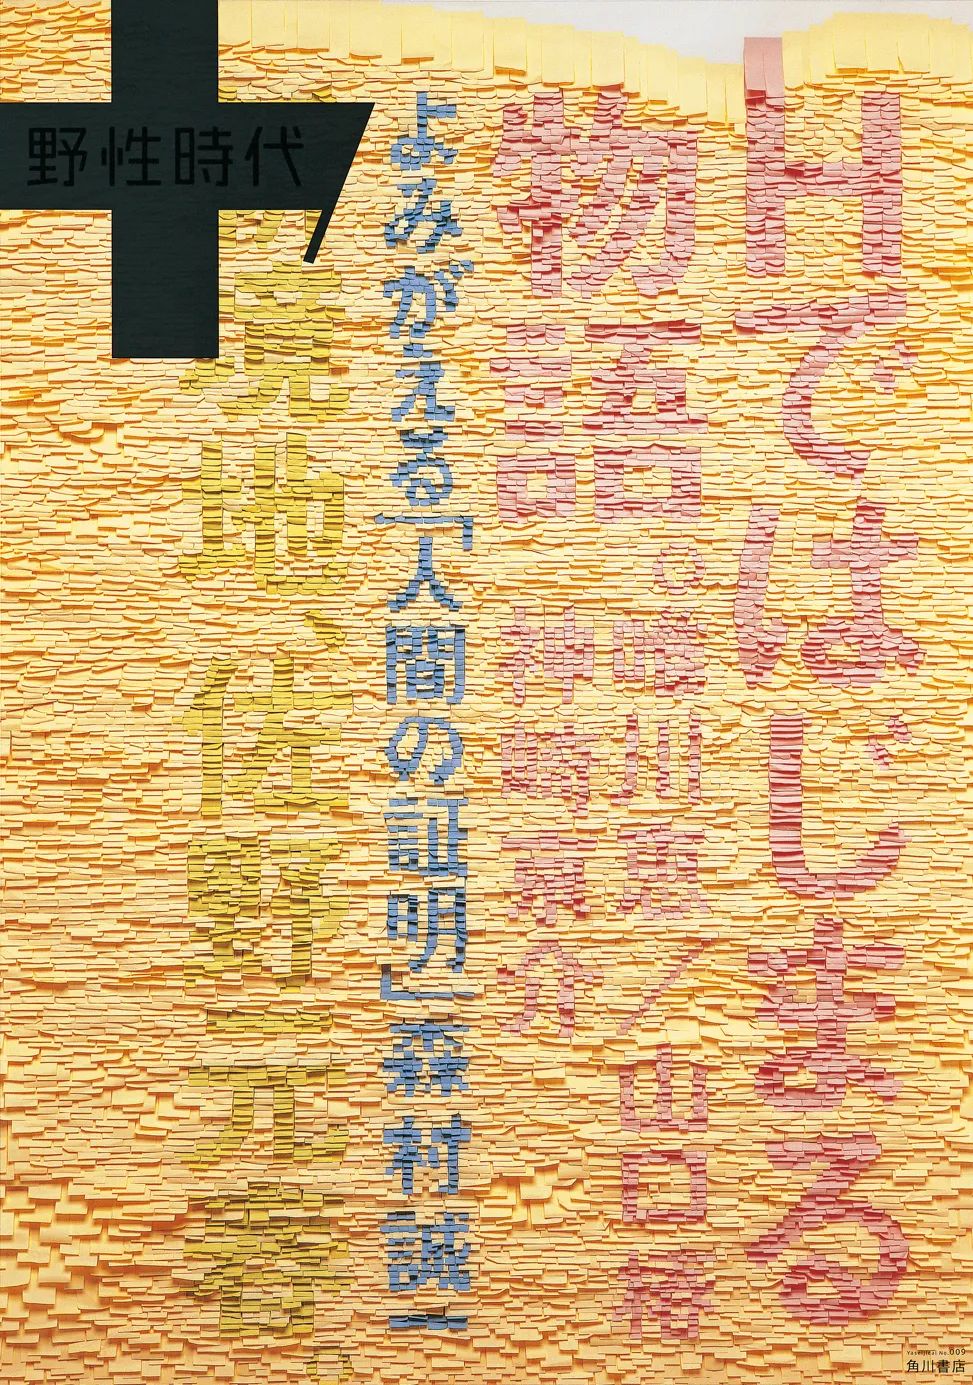 野性時代
Hではじまる
物語。
唯川恵/山口椿
神崎京介
よみがえる「人間の証明」森村誠一
荒地、佐野元春
Yaseijidai No.009
角川書店